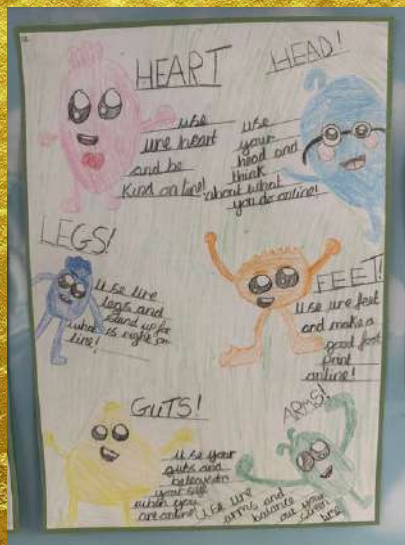 HEART
use
ure heart
and be
kind online!
HEAD!
use
your
head and
think
about what
you do online!
LEGS!
use ure
legs and
stand up for
what is right on
line!
FEET!
use ure feet
and make a
good foot
print
online!
GUTS!
use your
guts and
beleve in
your self
when you
are online!
ARMS!
use ure
arms and
balance
out your
screen
time